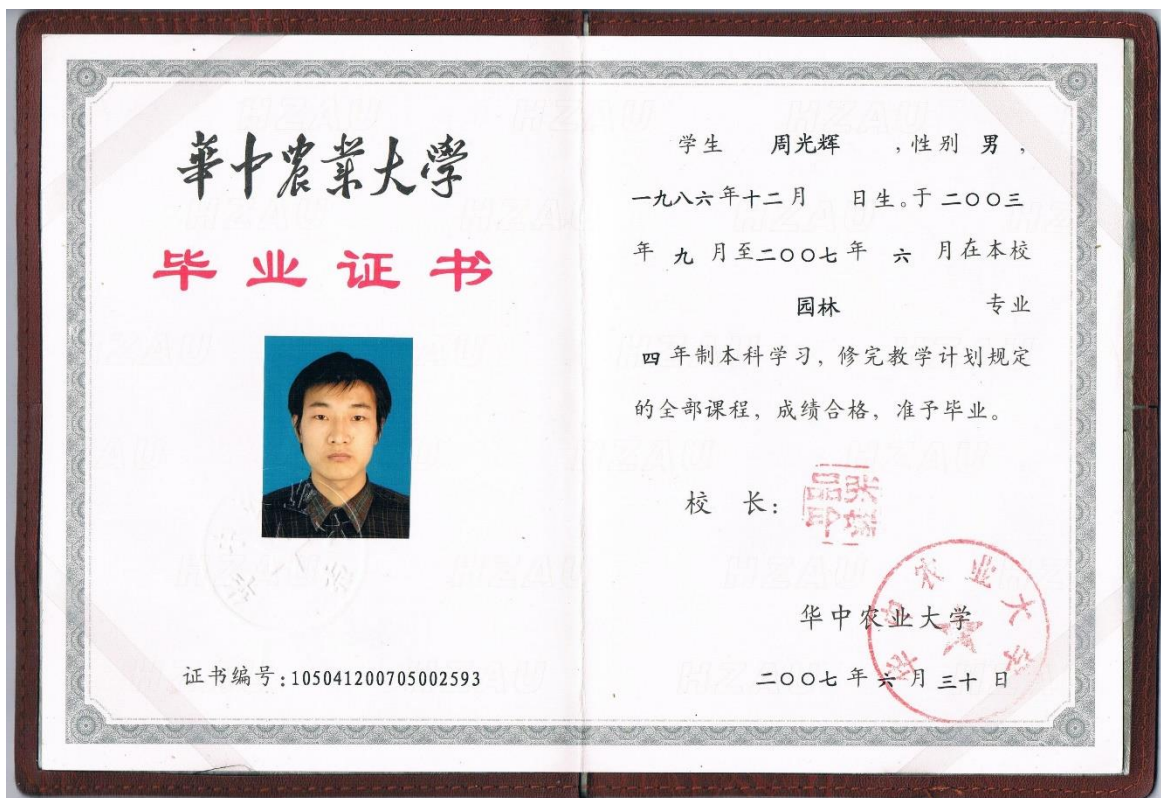 華中农業大學
毕业证书
证书编号:105041200705002593
学生 周光辉 ,性别 男 ,
一九八六年十二月 日生。于二〇〇三
年 九 月至二〇〇七年 六 月在本校
园林 专业
四 年制本科学习, 修完教学计划规定
的全部课程, 成绩合格, 准予毕业。
校 长:
华中农业大学
二〇〇七 年 六 月 三十 日
华中农业大学
HZAU